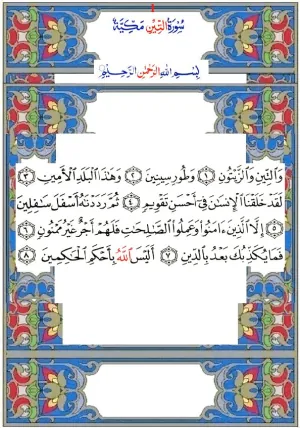 سُورَةُ التِّينِ مَكِّيَّةٌ
بِسْمِ اللَّهِ الرَّحْمَٰنِ الرَّحِيمِ
وَالتِّينِ وَالزَّيْتُونِ ١ وَطُورِ سِينِينَ ٢ وَهَٰذَا الْبَلَدِ الْأَمِينِ ٣
لَقَدْ خَلَقْنَا الْإِنسَٰنَ فِي أَحْسَنِ تَقْوِيمٍ ٤ ثُمَّ رَدَدْنَٰهُ أَسْفَلَ سَٰفِلِينَ
٥ إِلَّا الَّذِينَ ءَامَنُوا وَعَمِلُوا الصَّٰلِحَٰتِ فَلَهُمْ أَجْرٌ غَيْرُ مَمْنُونٍ ٦
فَمَا يُكَذِّبُكَ بَعْدُ بِالدِّينِ ٧ أَلَيْسَ اللَّهُ بِأَحْكَمِ الْحَٰكِمِينَ ٨